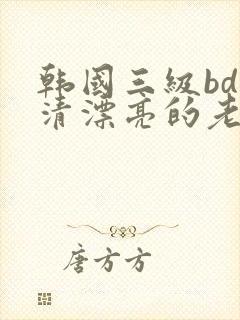 韩國三級bd
清漂亮的老
唐方方